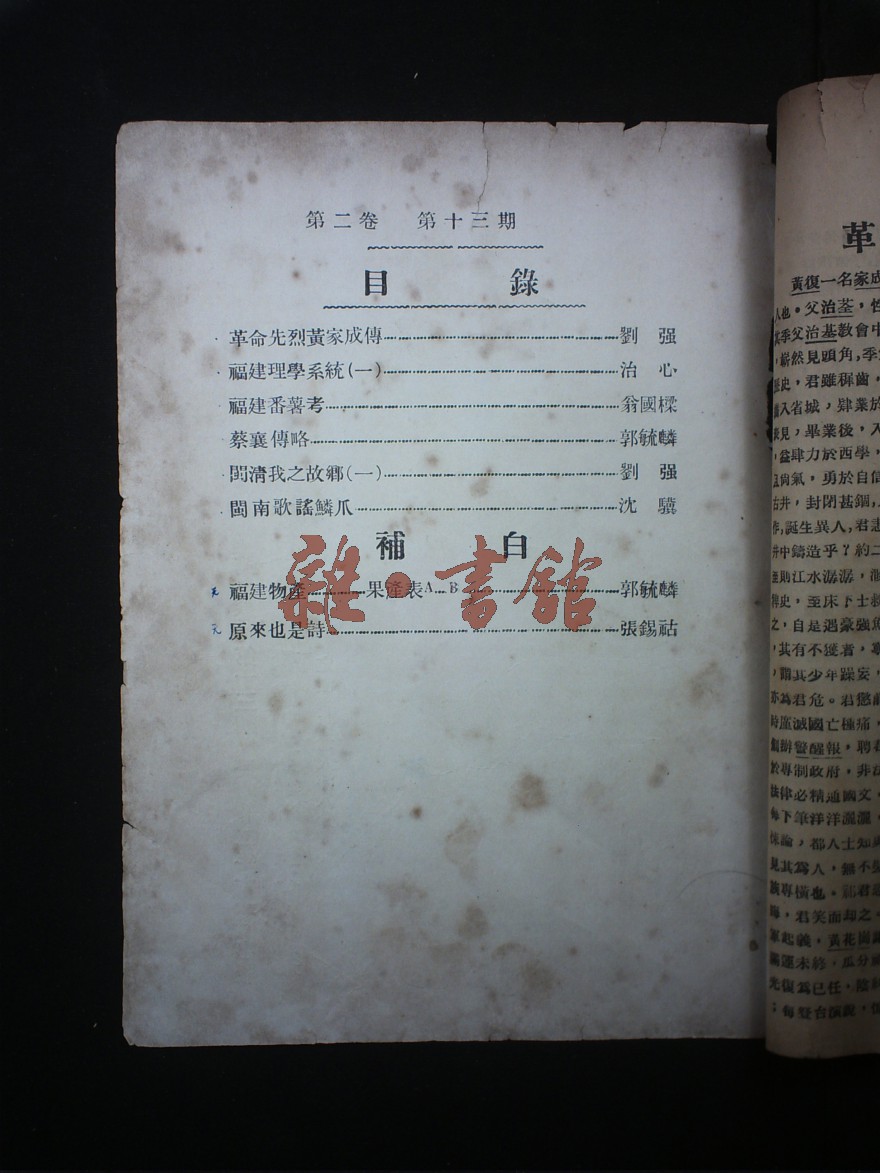 第二卷　第十三期
目錄
革命先烈黃家成傳……劉强
福建理學系統(一)……治心
福建番薯考……翁國樑
蔡襄傳略……郭毓麟
閩淸我之故鄉(一)……劉强
閩南歌謠鱗爪……沈驥
補白
福建物產……果產表A…B……郭毓麟
原來也是詩……張錫祜
雜·書館
革
黃復一名家成
人也。父治荃，性
其季父治基敎會中
，嶄然見頭角,季
歷史，君雖穉齒，
入省城，肄業於
見，畢業後，入
，益肆力於西學，
尙氣，勇於自信
古井，封閉甚錮,
,誕生異人,君
井中鑄造乎？約二
則江水潺潺，
稗史，至床下士
之，自是遇豪強
，其有不獲者，
，謂其少年躁妄，
亦為君危。君
國亡種痛，
警醒報，聘
於專制政府，非
法律必精通國文，
每下筆洋洋灑灑，
論，都人士知
見其爲人，無不
專橫也。
，君笑而却之。
起義，黃花崗
運未終，瓜分
光復爲已任，陰
；每登台演說，